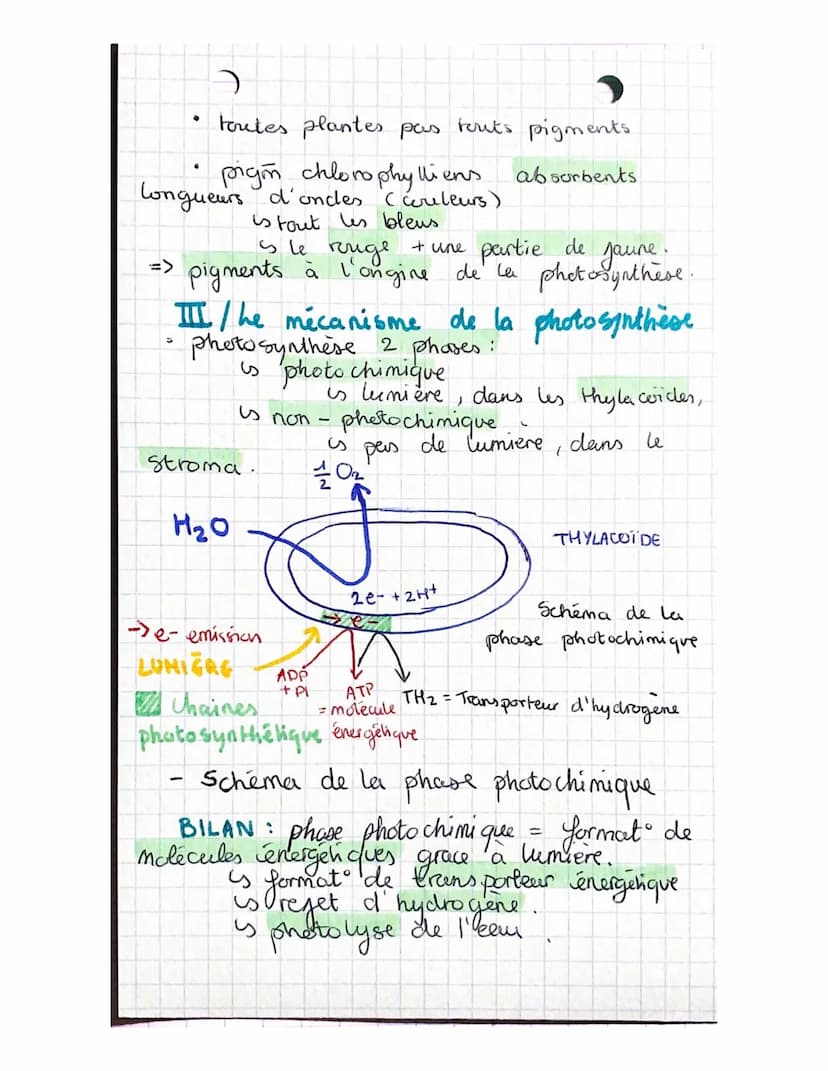 • toutes plantes pas touts pigments
• pigm̄ chlorophylliens absorbents
longueurs d'ondes (couleurs)
↳ tout les bleus
↳ le rouge + une partie de jaune.
=> pigments à l'origine de la photosynthèse.
III / Le mécanisme de la photosynthèse
• photosynthèse 2 phases :
↳ photochimique
↳ lumière, dans les thylacoïdes,
↳ non-photochimique
↳ pas de lumière, dans le
stroma.
½ O₂
H₂O
THYLACOÏDE
2e- + 2H⁺
→ e-
Schéma de la
phase photochimique
→ e- emission
LUMIÈRE
ADP
+ Pi
ATP
= molécule
énergélique
TH₂ = Transporteur d'hydrogène
Chaines
photosynthélique
- Schéma de la phase photochimique
BILAN : phase photochimique = format° de
molécules énergétiques grace à lumière.
↳ format° de transporteur énergétique
↳ rejet d'hydrogène.
↳ photolyse de l'eau.